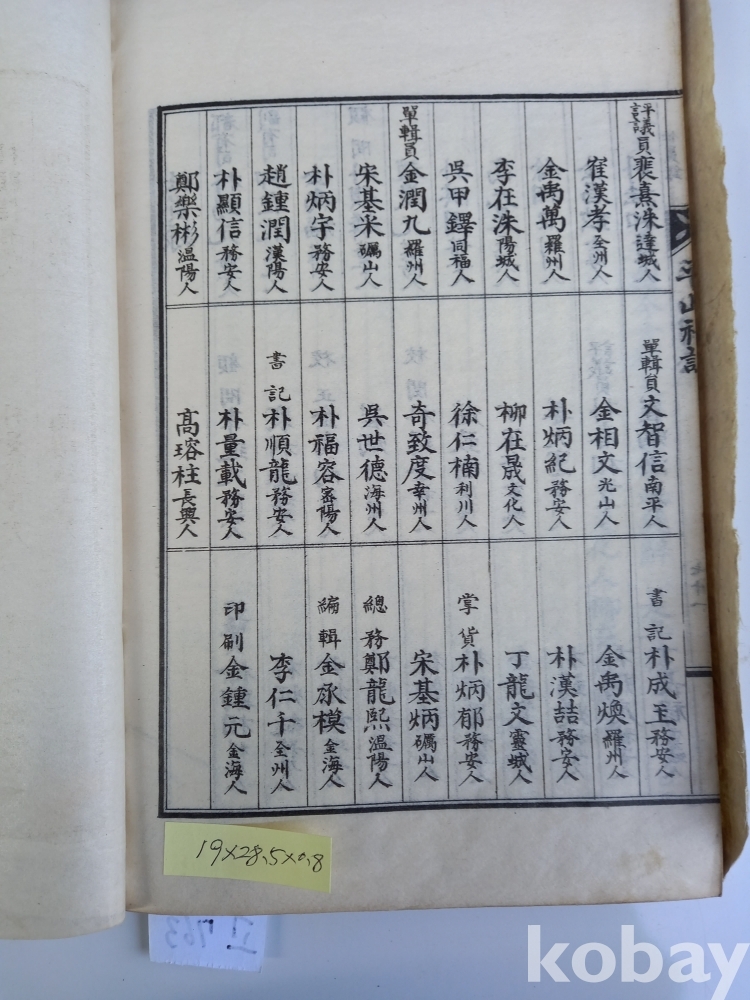 評議員裵熹洙達城人
崔漢孝全州人
金禹萬羅州人
李在洙陽城人
吳甲鐸同福人
單輯員金潤九羅州人
宋基米礪山人
朴炳宇務安人
趙鍾潤漢陽人
朴顯信務安人
鄭樂彬溫陽人
單輯員文智信南平人
金相文光山人
朴炳紀務安人
柳在晟文化人
徐仁楠利川人
奇致度幸州人
吳世德海州人
朴福容密陽人
書記朴順龍務安人
朴量載務安人
高瑢柱長興人
書記朴成玉務安人
金禹煥羅州人
朴漢喆務安人
丁龍文靈城人
掌貨朴炳郁務安人
宋基炳礪山人
總務鄭龍熙溫陽人
編輯金承模金海人
李仁千全州人
印刷金鍾元金海人
19×28.5×0.8
763
kobay